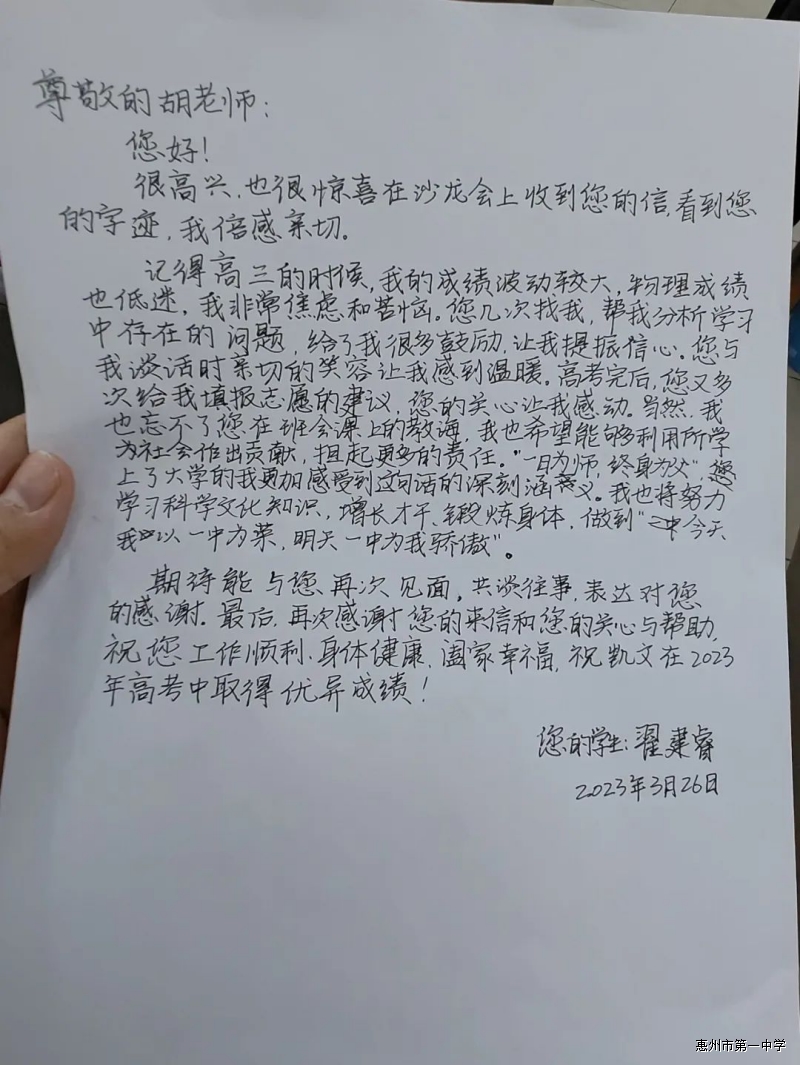 尊敬的胡老师：
您好！
很高兴，也很惊喜在沙龙会上收到您的信，看到您
的字迹，我倍感亲切。
记得高三的时候，我的成绩波动较大，物理成绩
也低迷，我非常焦虑和苦恼。您几次找我，帮我分析学习
中存在的问题，给了我很多鼓励，让我提振信心。您与
我谈话时亲切的笑容让我感到温暖。高考完后，您又多
次给我填报志愿的建议，您的关心让我感动。当然，我
也忘不了您在班会课上的教诲，我也希望能够利用所学
为社会作出贡献，担起更多的责任。"一日为师，终身为父"
上了大学的我更加感受到这句话的深刻涵义。我也将努力
学习科学文化知识，增长才干，锻炼身体，做到"今天
我以一中为荣，明天一中为我骄傲"。
期待能与您再次见面，共谈往事，表达对您
的感谢。最后，再次感谢您的来信和您的关心与帮助，
祝您工作顺利，身体健康，阖家幸福，祝凯文在2023
年高考中取得优异成绩！
您的学生：翟建睿
2023年3月26日
惠州市第一中学